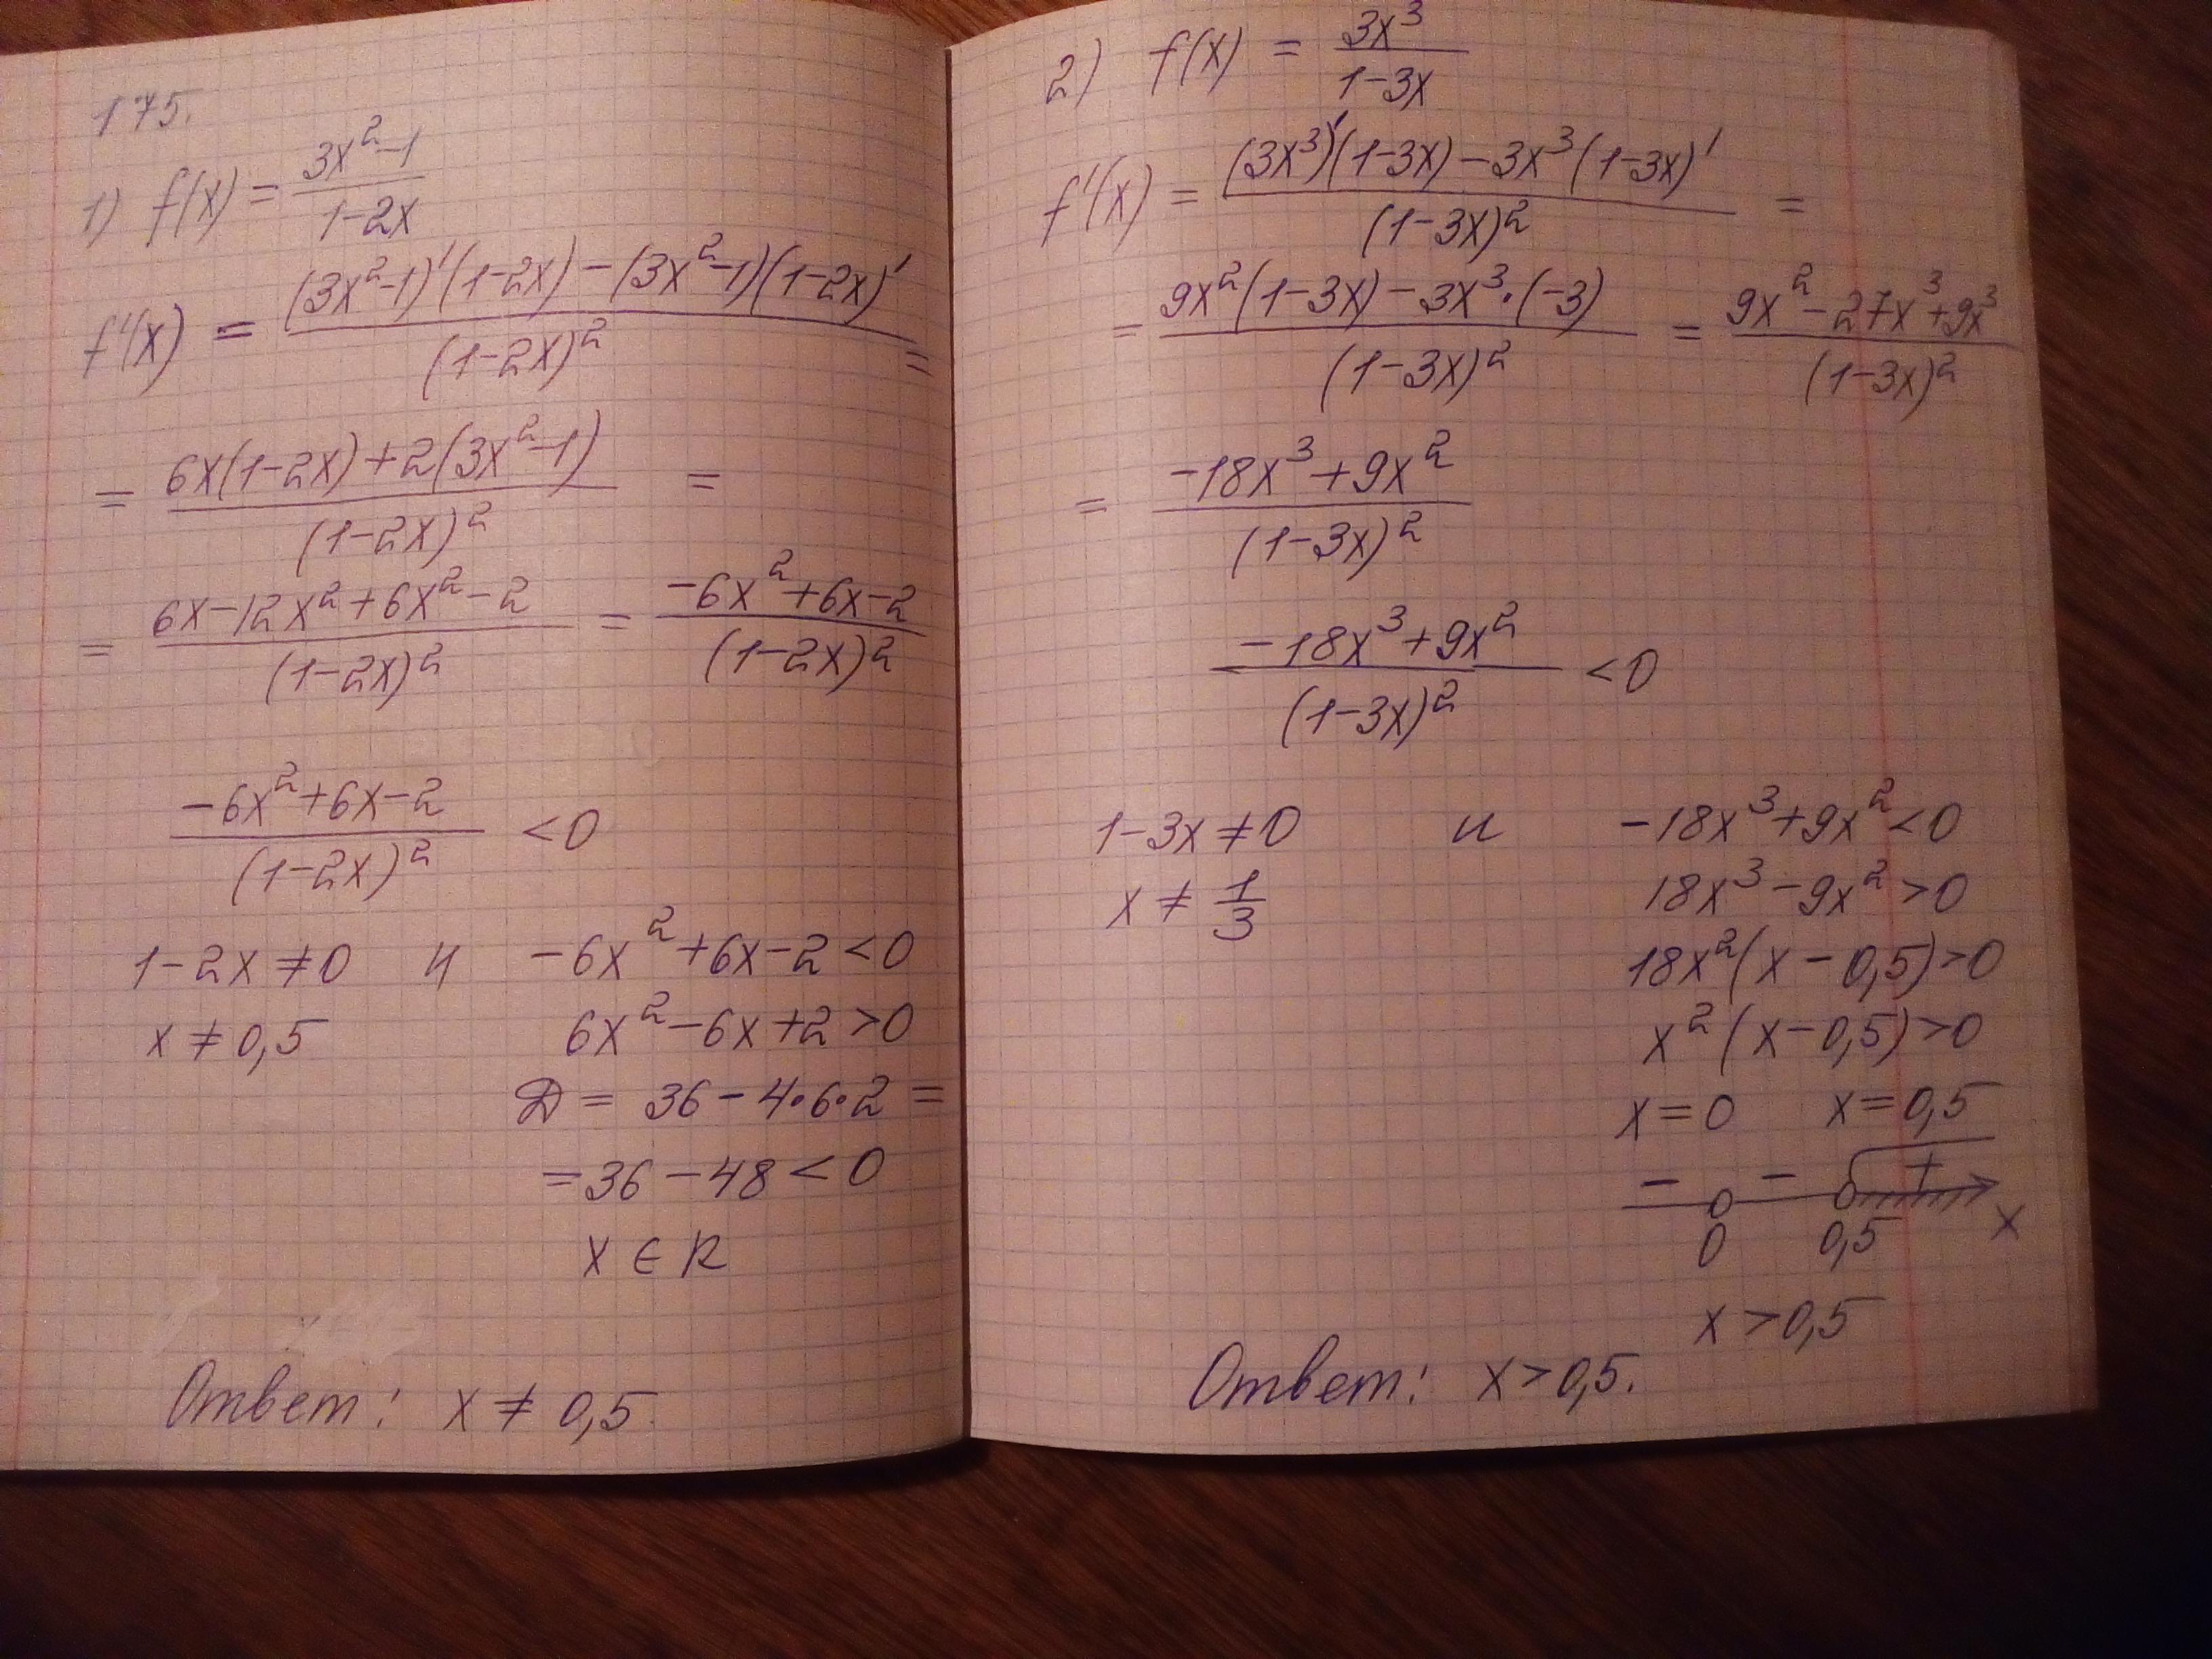 175.
1) f(x) = (3x²-1)/(1-2x)
f'(x) = ((3x²-1)'(1-2x) - (3x²-1)(1-2x)')/(1-2x)² =
= (6x(1-2x)+2(3x²-1))/(1-2x)² =
= (6x-12x²+6x²-2)/(1-2x)² = (-6x²+6x-2)/(1-2x)²
(-6x²+6x-2)/(1-2x)² <0
1-2x≠0 и -6x²+6x-2<0
x≠0,5 6x²-6x+2>0
Д = 36-4•6•2 =
=36-48<0
x ∈ R
Ответ: x ≠ 0,5.
2) f(x) = 3x³/(1-3x)
f'(x) = ((3x³)'(1-3x) - 3x³(1-3x)')/(1-3x)² =
= (9x²(1-3x) - 3x³•(-3))/(1-3x)² = (9x²-27x³+9x³)/(1-3x)²
= (-18x³+9x²)/(1-3x)²
(-18x³+9x²)/(1-3x)² <0
1-3x≠0 и -18x³+9x²<0
x ≠ 1/3 18x³-9x²>0
18x²(x-0,5)>0
x²(x-0,5)>0
x=0 x=0,5
- - +
0 0,5 x
x>0,5
Ответ: x>0,5.